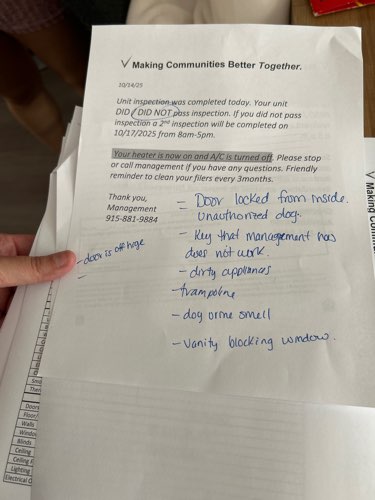 √ Making Communities Better Together.
10/14/25
Unit inspection was completed today. Your unit
DID/DID NOT pass inspection. If you did not pass
inspection a 2nd inspection will be completed on
10/17/2025 from 8am-5pm.
Your heater is now on and A/C is turned off. Please stop
or call management if you have any questions. Friendly
reminder to clean your filers every 3months.
Thank you,
Management
915-881-9884
- Door locked from inside.
Unauthorized dog.
- Key that management has
does not work.
- dirty appliances
- trampoline
- dog orine smell
- Vanity blocking window.
- door is off hige
-
√ Making Commu
Smo
Doors
Floor/
Walls
Window
Blinds
Ceiling
Ceiling F
Lighting
Electrical O